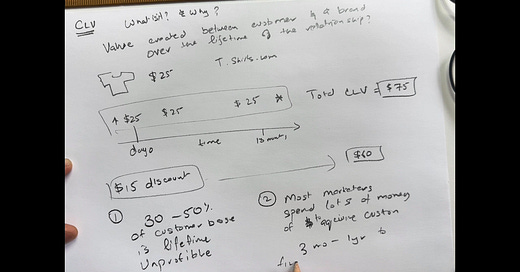 CLV What is it? & Why?
Value created between customer & a brand
over the lifetime of the relationship?
$25
T.Shirts.com
$25 $25 $25
Total CLV = $75
day 0 time
$15 discount $60
① 30-50%
of customer base
is lifetime
② Most marketers
spend lots of money
3 mo - 1 yr to